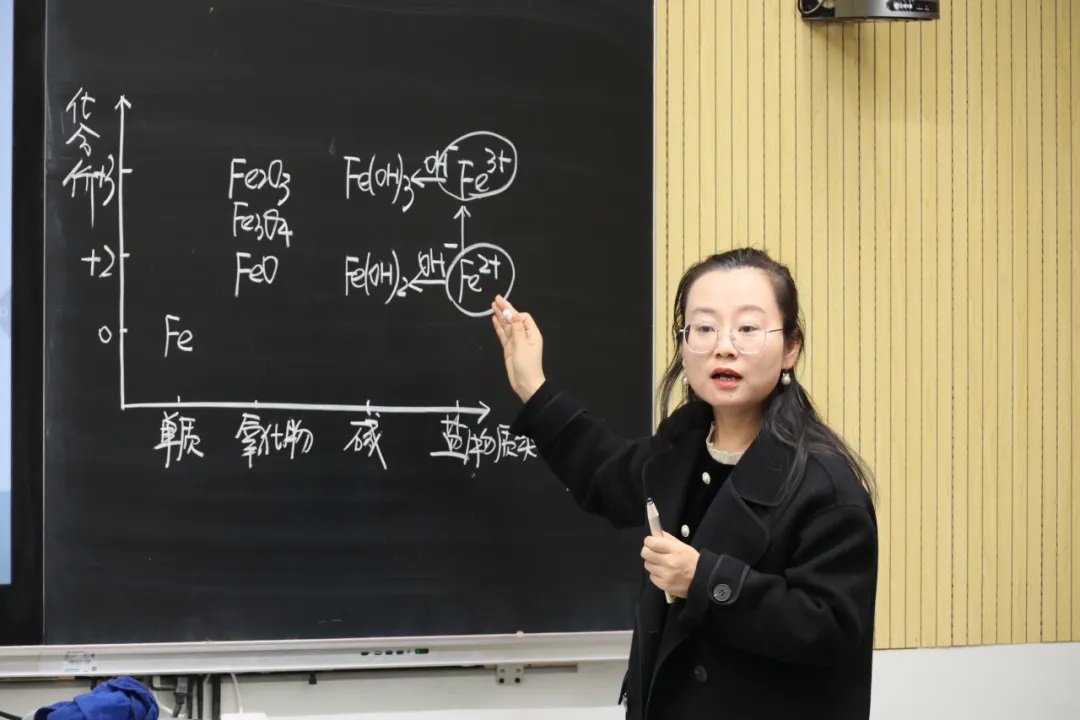 化合价
+3 Fe2O3 Fe(OH)3 ←OH⁻ Fe³⁺
Fe3O4
+2 FeO Fe(OH)2 ←OH⁻ Fe²⁺
0 Fe
单质 氧化物 碱 盐 物质类